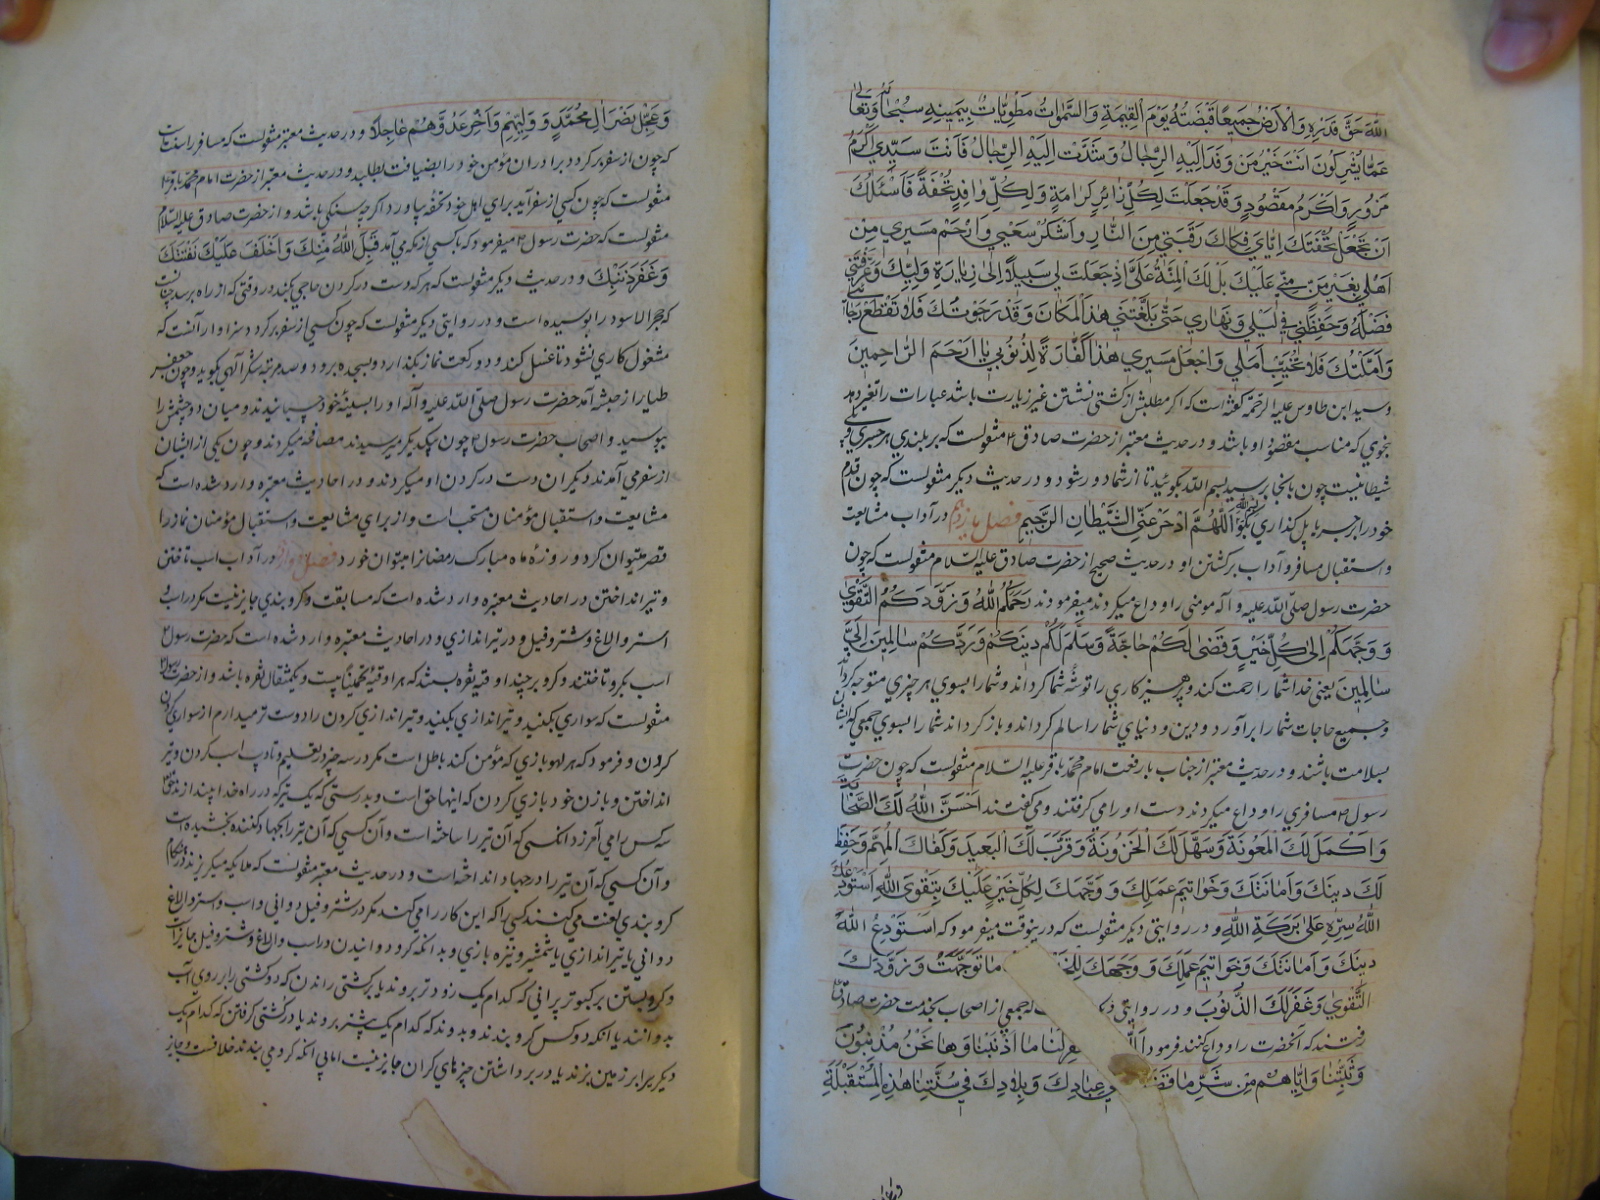 اللهَ حَقَّ قَدْرِهِ وَالْاَرْضُ جَمیعًا قَبْضَتُهُ یَوْمَ الْقِیٰمَةِ وَالسَّمٰوٰاتُ مَطْوِیّٰاتٌ بِیَمینِهِ سُبْحٰانَهُ وَتَعٰالٰی
عَمّٰا یُشْرِکُونَ اَنْتَ خَیْرُ مَنْ وَفَدَ اِلَیْهِ الرِّجٰالُ وَشُدَّتْ اِلَیْهِ الرِّحٰالُ فَاَنْتَ سَیِّدی اَکْرَمُ
مَزُورٍ وَاَکْرَمُ مَقْصُودٍ وَقَدْ جَعَلْتَ لِکُلِّ زٰائِرٍ کَرٰامَةٍ وَلِکُلِّ وٰافِدٍ تُحْفَةً فَاَسْئَلُكَ
اَنْ تَجْعَلَ تُحْفَتَكَ اِیّٰایَ فَکٰاكَ رَقَبَتی مِنَ النّٰارِ وَاَشْکُرْ سَعْیی وَارْحَمْ مَسیری مِنْ
اَهْلی بِغَیْرِ مَنٍّ مِنّی عَلَیْكَ بَلْ لَكَ الْمِنَّةُ عَلَیَّ اِذْ جَعَلْتَ لی سَبیلًا اِلٰی زِیٰارَةِ وَلِیِّكَ وَعَرَّفْتَنی
فَضْلَهُ وَحَفِظْتَنی فی لَیْلی وَنَهٰاری حَتّٰی بَلَّغْتَنی هٰذَا الْمَکٰانَ وَقَدْ رَجَوْتُكَ فَلٰا تَقْطَعْ رَجٰائی
وَاَمَّلْتُكَ فَلٰا تُخَیِّبْ اَمَلی وَاجْعَلْ مَسیری هٰذٰا کَفّٰارَةً لِذُنُوبی یٰا اَرْحَمَ الرّٰاحِمینَ
وسید ابن طاوس علیه الرحمه کفته است که اکر مطلبش از کشتی نشستن غیر زیارت باشد عبارات را تغیر دهد
بنحوی که مناسب مقصود او باشد و در حدیث معتبر از حضرت صادق ع منقولست که بر بلندی هر جسری
شیطانیست چون بانجا برسید بسم الله بکوئید تا از شما دور شود و در حدیث دیکر منقولست که چون قدم
خود را بر جسر یا پل کذاری بکو بسم الله اَللّٰهُمَّ ادْحَرْ عَنِّی الشَّیْطٰانَ الرَّجیمَ فصل یازدهم در آداب مشایعت
و استقبال مسافر و آداب برکشتن او در حدیث صحیح از حضرت صادق علیه السلام منقولست که چون
حضرت رسول صلّی الله علیه و آله مومنی را وداع میکردند میفرمودند رَحِمَکُمُ اللهُ وَزَوَّدَکُمُ التَّقْویٰ
وَوَجَّهَکُمْ اِلٰی کُلِّ خَیْرٍ وَقَضٰی لَکُمْ حٰاجَةً وَسَلَّمَ لَکُمْ دینَکُمْ وَرَدَّکُمْ سٰالِمینَ اِلٰی
سٰالِمینَ یعنی خدا شما را رحمت کند و پرهیزکاری را توشه شما کرداند و شما را بسوی هر چیزی متوجه کرداند
و جمیع حاجات شما را برآورد و دین و دنیای شما را سالم کرداند و باز کرداند شما را بسوی جمعی که ایشان
بسلامت باشند و در حدیث معتبر از جناب بارفعت امام محمد باقر علیه السلام منقولست که چون حضرت
رسول ص مسافری را وداع میکردند دست او را می کرفتند و می کفتند اَحْسَنَ اللهُ لَكَ الصَّحٰابَةَ
وَاَکْمَلَ لَكَ الْمَعُونَةَ وَسَهَّلَ لَكَ الْحُزُونَةَ وَقَرَّبَ لَكَ الْبَعیدَ وَکَفٰاكَ الْمُهِمَّ وَحَفِظَ
لَكَ دینَكَ وَاَمٰانَتَكَ وَخَوٰاتیمَ عَمَلِكَ وَوَجَّهَكَ لِکُلِّ خَیْرٍ عَلَیْكَ بِتَقْوَی اللهِ اَسْتَوْدِعُكَ
اللهَ سِرْ عَلٰی بَرَکَةِ اللهِ و در روایتی دیکر منقولست که درینوقت میفرمود که اَسْتَوْدِعُ اللهَ
دینَكَ وَاَمٰانَتَكَ وَخَوٰاتیمَ عَمَلِكَ وَوَجَّهَكَ لِلْخَ مٰا تَوَجَّهْتَ وَزَوَّدَكَ
التَّقْویٰ وَغَفَرَ لَكَ الذُّنُوبَ و در روایتی جمعی از اصحاب بخدمت حضرت صادق
رفتند که آنحضرت را وداع کنند فرمود لَنٰا مٰا اَذْنَبْنٰا وَهٰا نَحْنُ مُذْنِبُونَ
وَثَبِّتْنٰا وَاِیّٰاهُمْ مِنْ شَرِّ مٰا عِبٰادِكَ وَبِلٰادِكَ فی سَنَتِنٰا هٰذِهِ الْمُسْتَقْبَلَةِ
وَعَجِّلْ نَصْرَ اٰلِ مُحَمَّدٍ وَوَلِیِّهِمْ وَاَخْزِ عَدُوَّهُمْ عٰاجِلًا و در حدیث معتبر منقولست که مسافر را سنت است
که چون از سفر برکردد برادران مؤمن خود را بضیافت بطلبد و در حدیث معتبر از حضرت امام محمد باقر ع
منقولست که چون کسی از سفر آید برای اهل خود تحفه بیاورد اکرچه سنکی باشد و از حضرت صادق علیه السلام
منقولست که حضرت رسول ص میفرمود که با کسی از مکه می آمد قَبِلَ اللهُ مِنْكَ وَاَخْلَفَ عَلَیْكَ نَفَقَتَكَ
وَغَفَرَ ذَنْبَكَ و در حدیث دیکر منقولست که هر که دست در کردن حاجی بکند در وقتی که از راه برسد چنانست
که حجر الاسود را بوسیده است و در روایتی دیکر منقولست که چون کسی از سفر برکردد سزاوار آنست که
مشغول کاری نشود تا غسل کند و دو رکعت نماز بکذارد و بسجده برود و صد مرتبه شکر الهی بکوید و چون جعفر
طیار از حبشه آمد حضرت رسول صلی الله علیه و آله او را بسینۀ خود چسبانیدند و میان دو چشمش را
ببوسید و اصحاب حضرت رسول ص چون بیکدیکر میرسیدند مصافحه میکردند و چون یکی از ایشان
از سفر می آمدند دیکران دست در کردن او میکردند و در احادیث معتبره وارد شده است که
مشایعت و استقبال مؤمنان مستحب است و از برای مشایعت و استقبال مؤمنان نماز را
قصر میتوان کرد و روزه ماه مبارک رمضان را میتوان خورد فصل دوازدهم در آداب اسب تاختن
و تیر انداختن در احادیث معتبره وارد شده است که مسابقت و کروبندی جایز نیست مکر در اسب و
استر و الاغ و شتر و فیل و در تیر اندازی و در احادیث معتبره وارد شده است که حضرت رسول ص
اسب بکرو تاختند و کرو بر چند اوقیه نقره بستند که هر اوقیه تخمینا بیست و یکمثقال نقره باشد و از حضرت رسول ص
منقولست که سواری بکنید و تیر اندازی بکنید و تیر اندازی کردن را دوست تر میدارم از سواری کردن
و فرمود که هر لهو بازی که مؤمن کند باطل است مکر در سه چیز در تعلیم و تادیب اسب کردن و تیر
انداختن و با زن خود بازی کردن که اینها حق است و بدرستی که یک تیر که در راه خدا بیندازند حق تعالی
سه کس را می آمرزد انکسی که آن تیر را ساخته است و آن کسی که آن تیر را بجهاد کننده بخشیده است
و آن کسی که آن تیر را در جهاد انداخته است و در حدیث معتبر منقولست که ملائکه میکریزند در هنکام
کروبندی و لعنت می کنند کسی را که این کار را می کند مکر در شتر و فیل دوانی و اسب و استر و الاغ
دوانی یا تیر اندازی یا شمشیر و نیزه بازی و بدانکه کرو دوانیدن در اسب و الاغ و شتر و فیل جایز است
و کروبستن بر کبوتر پرانی که کدام یک زودتر بروند یا بر کشتی راندن که دو کشتی را بر روی آب
بدوانند یا انکه دو کس کرو بندند و بدوند که کدام یک پیشتر بروند یا در کشتی کرفتن که کدام یک
دیکر برابر زمین بزند یا در برداشتن چیزهای کران جایز نیست اما بی انکه کرو می بندند خلافست و جایز